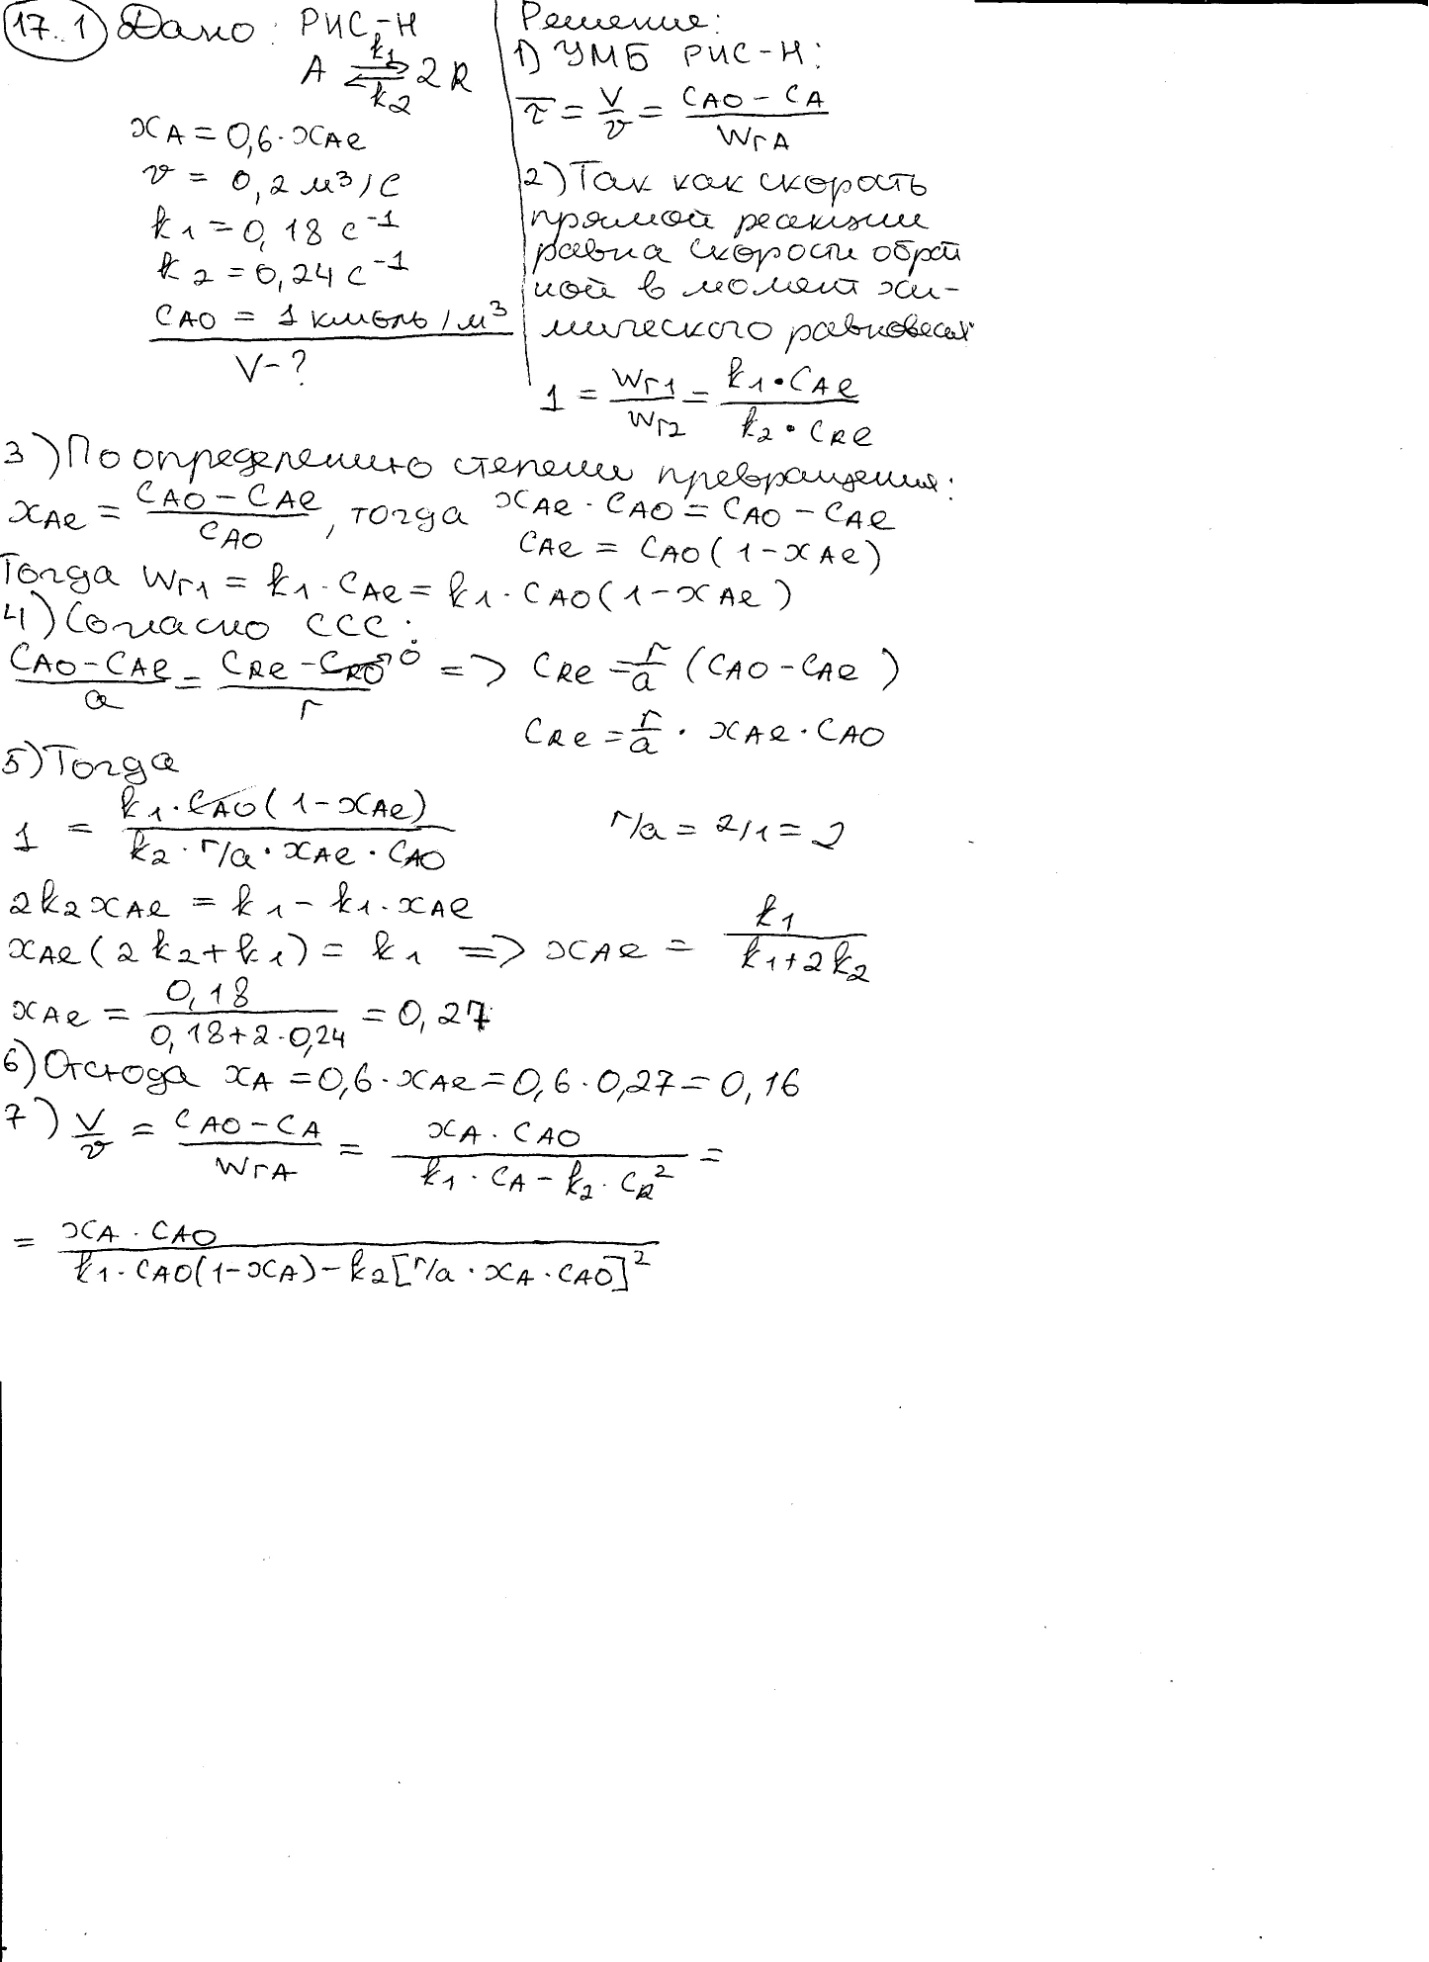 17.1 Дано: РИС-Н
A ⇄ 2R
k1
k2
xA = 0,6·xAe
v = 0,2 м³/с
k1 = 0,18 с⁻¹
k2 = 0,24 с⁻¹
CA0 = 1 кмоль/м³
V - ?
Решение:
1) УМБ РИС-Н:
τ̅ = V/v = (CA0 - CA)/WrA
2) Так как скорость
прямой реакции
равна скорости обрат
ной в момент хи-
мического равновесия:
1 = Wr1/Wr2 = (k1·CAe)/(k2·CRe)
3) По определению степени превращения:
xAe = (CA0 - CAe)/CA0, тогда xAe·CA0 = CA0 - CAe
CAe = CA0(1-xAe)
Тогда Wr1 = k1·CAe = k1·CA0(1-xAe)
4) Согласно ССС:
(CA0 - CAe)/a = (CRe - CR0→0)/r => CRe = r/a (CA0 - CAe)
CRe = r/a · xAe · CA0
5) Тогда
1 = (k1·CA0(1-xAe))/(k2·r/a·xAe·CA0) r/a = 2/1 = 2
2k2xAe = k1 - k1·xAe
xAe(2k2+k1) = k1 => xAe = k1/(k1+2k2)
xAe = 0,18/(0,18+2·0,24) = 0,27
6) Отсюда xA = 0,6·xAe = 0,6·0,27 = 0,16
7) V/v = (CA0 - CA)/WrA = (xA·CA0)/(k1·CA - k2·CR²) =
= (xA·CA0)/(k1·CA0(1-xA) - k2[r/a·xA·CA0]²)